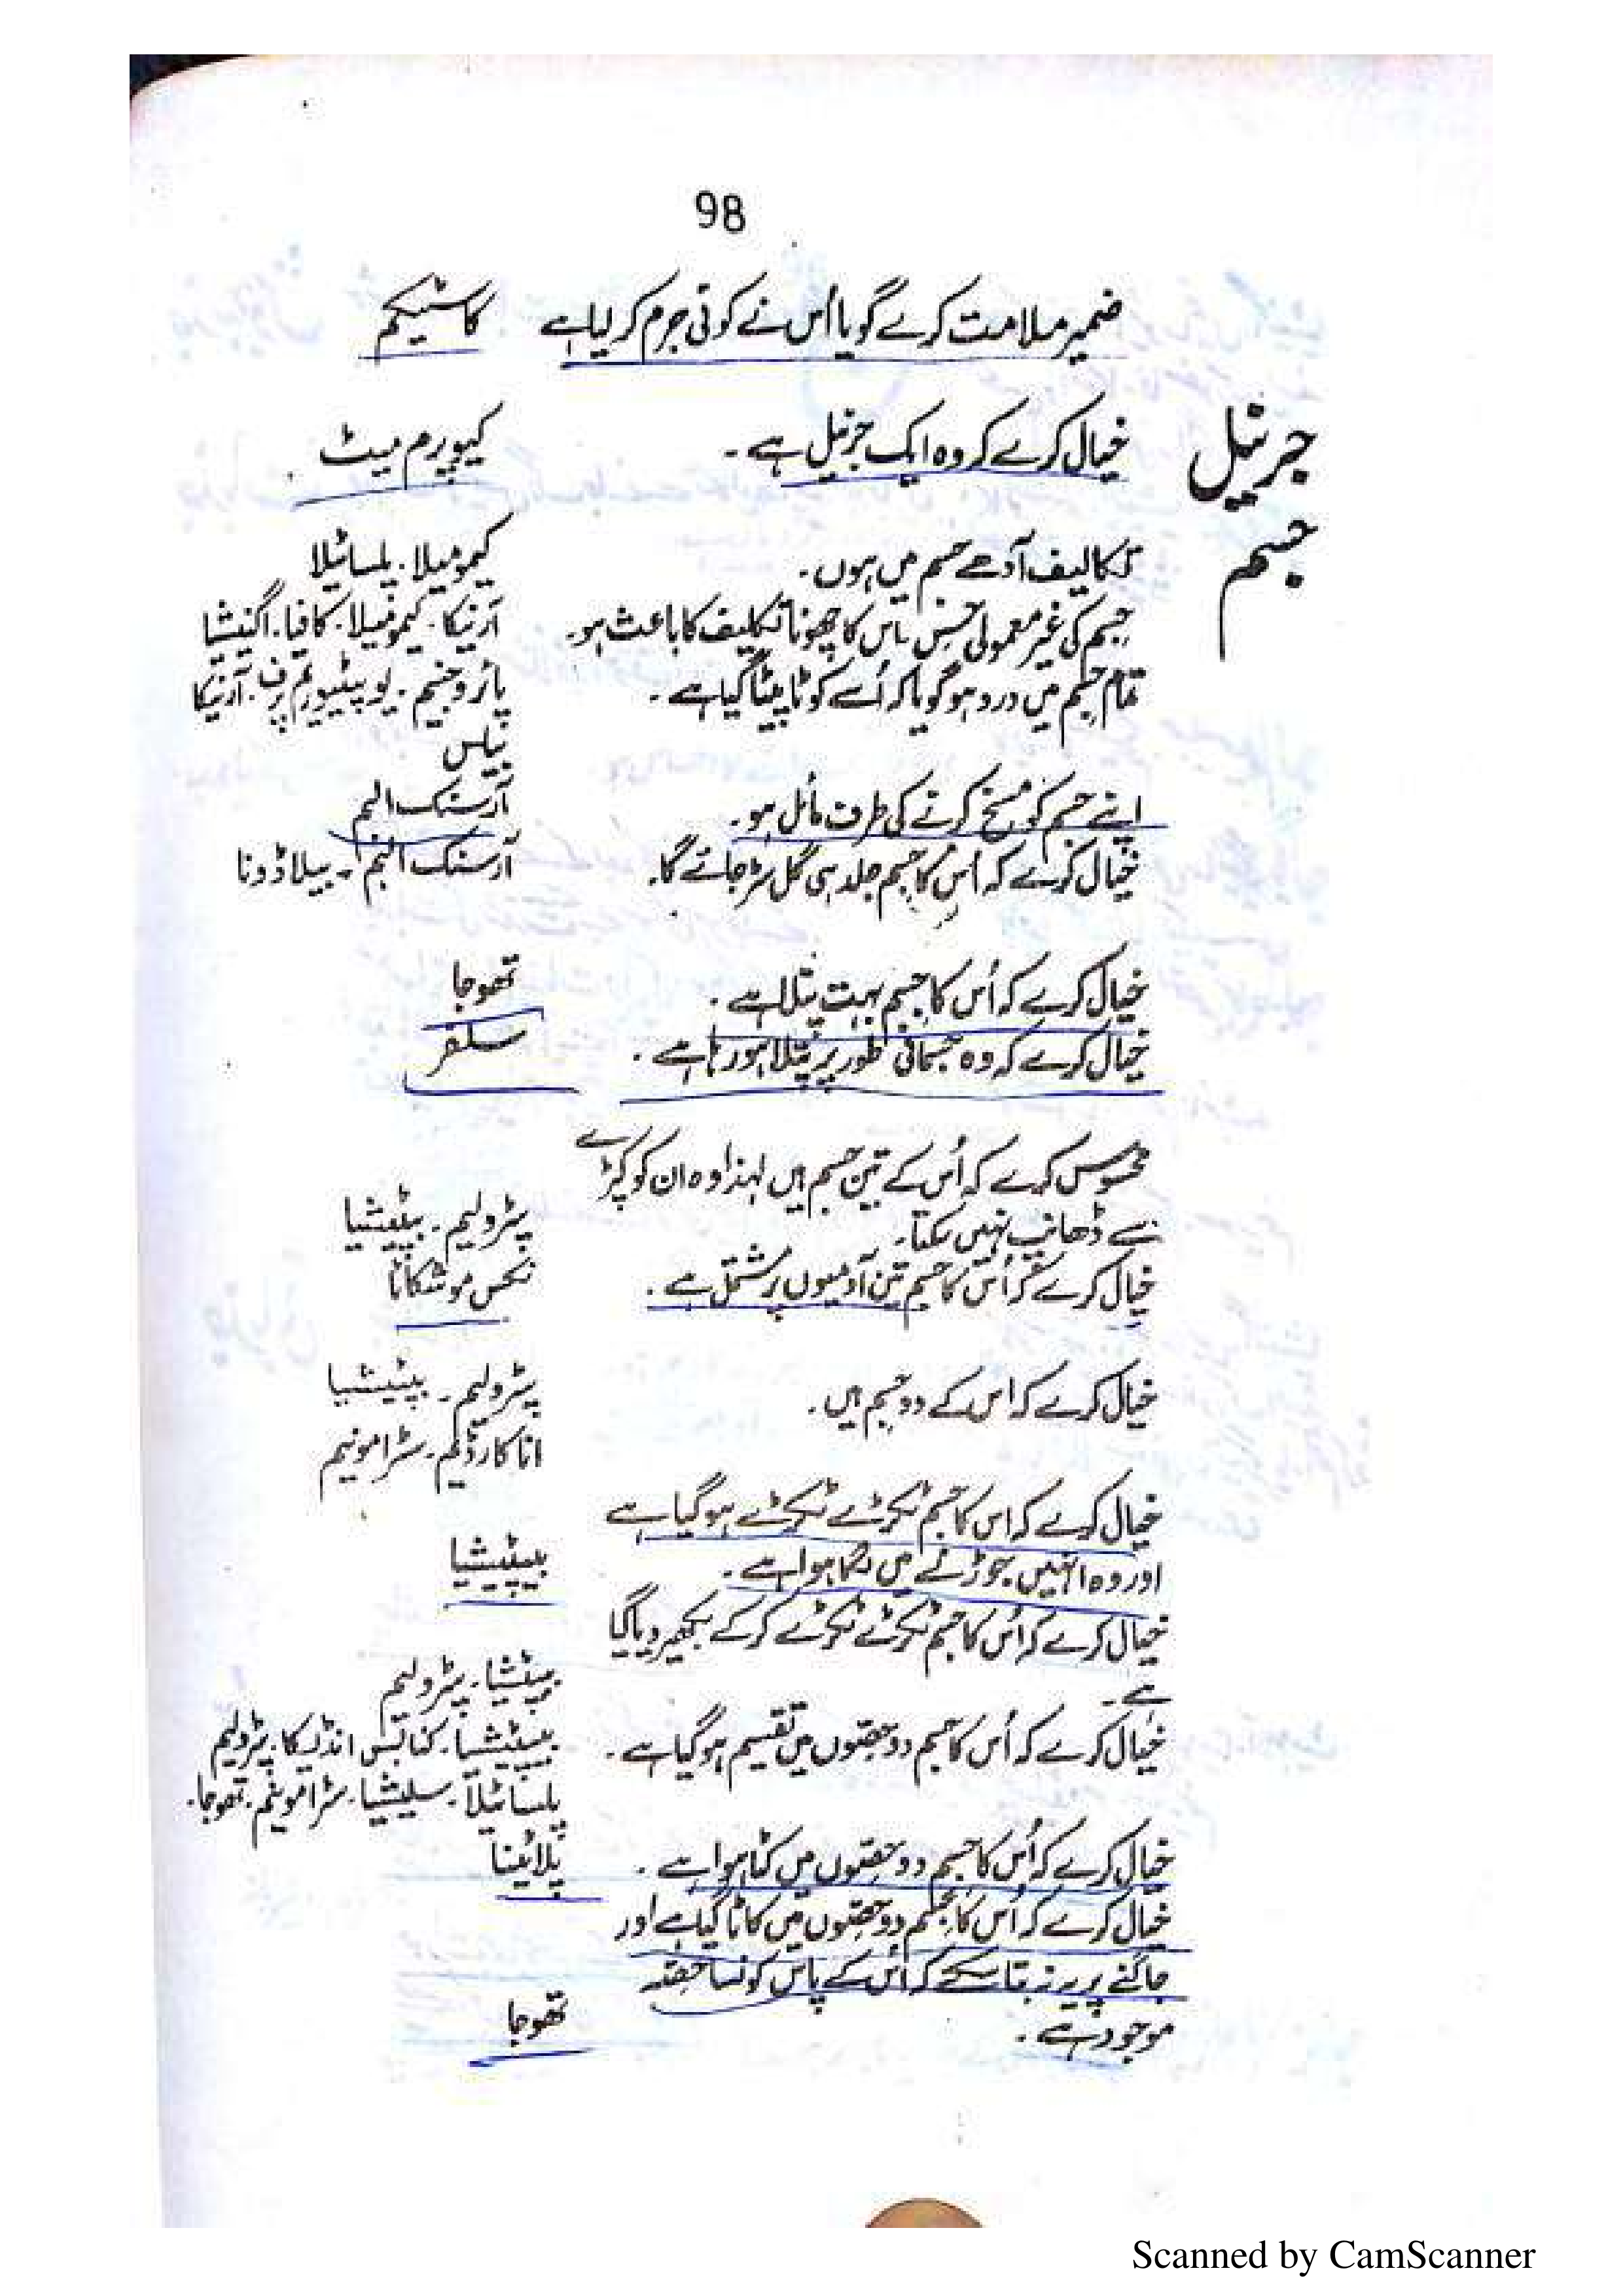 98
ضمیر ملامت کرے گویا اُس نے کوئی جرم کر لیا ہے کاسٹیکم
جرنیل خیال کرے کہ وہ ایک جرنیل ہے۔ کیوپرم میٹ
جسم تکالیف آدھے جسم میں ہوں۔ کیمومیلا۔ پلساٹیلا
جسم کی غیر معمولی حِس ہاس کا چھونا تکلیف کا باعث ہو۔ آرنیکا۔ کیمومیلا۔ کافیا۔ اگنیشیا
تمام جسم میں درد ہو گویا کہ اُسے کوٹا پیٹا گیا ہے۔ پائروجنیم۔ یوپیٹیوریم پرف۔ آرنیکا
بیلس
اپنے جسم کو مسخ کرنے کی طرف مائل ہو۔ آرسنک البم
خیال کرے کہ اُس کا جسم جلد ہی گل سڑ جائے گا۔ آرسنک البم۔ بیلاڈونا
خیال کرے کہ اُس کا جسم بہت پتلا ہے۔ تھوجا
خیال کرے کہ وہ جسمانی طور پر پتلا ہو رہا ہے۔ سلفر
محسوس کرے کہ اُس کے تین جسم ہیں لہذا وہ ان کو کپڑے
سے ڈھانپ نہیں سکتا۔ پٹرولیم۔ بپٹیشیا
خیال کرے کہ اُس کا جسم تین آدمیوں پر مشتمل ہے۔ نکس موشکاٹا
خیال کرے کہ اس کے دو جسم ہیں۔ پٹرولیم۔ بپٹیشیا
اناکارڈیم۔ سٹرامونیم
خیال کرے کہ اس کا جسم ٹکڑے ٹکڑے ہو گیا ہے
اور وہ انہیں جوڑنے میں لگا ہوا ہے۔ بیپٹیشیا
خیال کرے کہ اُس کا جسم ٹکڑے ٹکڑے کر کے بکھیر دیا گیا
ہے۔ بیپٹشیا۔ پٹرولیم
خیال کرے کہ اُس کا جسم دو حصّوں میں تقسیم ہو گیا ہے۔ بیپٹیشیا۔ کنابس انڈیکا۔ پٹرولیم
پلساٹیلا۔ سلیشیا۔ سٹرامونیم۔ تھوجا۔
خیال کرے کہ اُس کا جسم دو حصّوں میں کٹا ہوا ہے۔ پلاٹینا
خیال کرے کہ اُس کا جسم دو حصّوں میں کاٹا گیا ہے اور
جاگنے پر یہ نہ بتا سکے کہ اُس کے پاس کونسا حصّہ
موجود ہے۔ تھوجا
Scanned by CamScanner